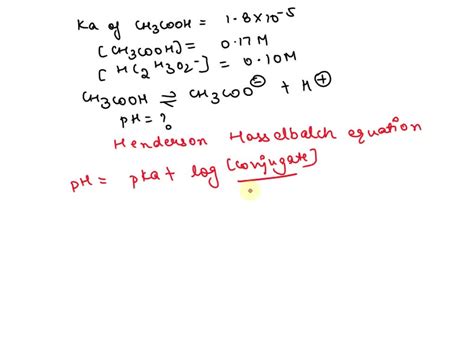 Ka of CH3COOH = 1.8×10⁻⁵
[CH3COOH] = 0.17M
[HC2H3O2⁻] = 0.10M
CH3COOH ⇌ CH3COO⊖ + H⊕
pH = ?
Henderson Hasselbalch equation
pH = pKa + log [conjugate]